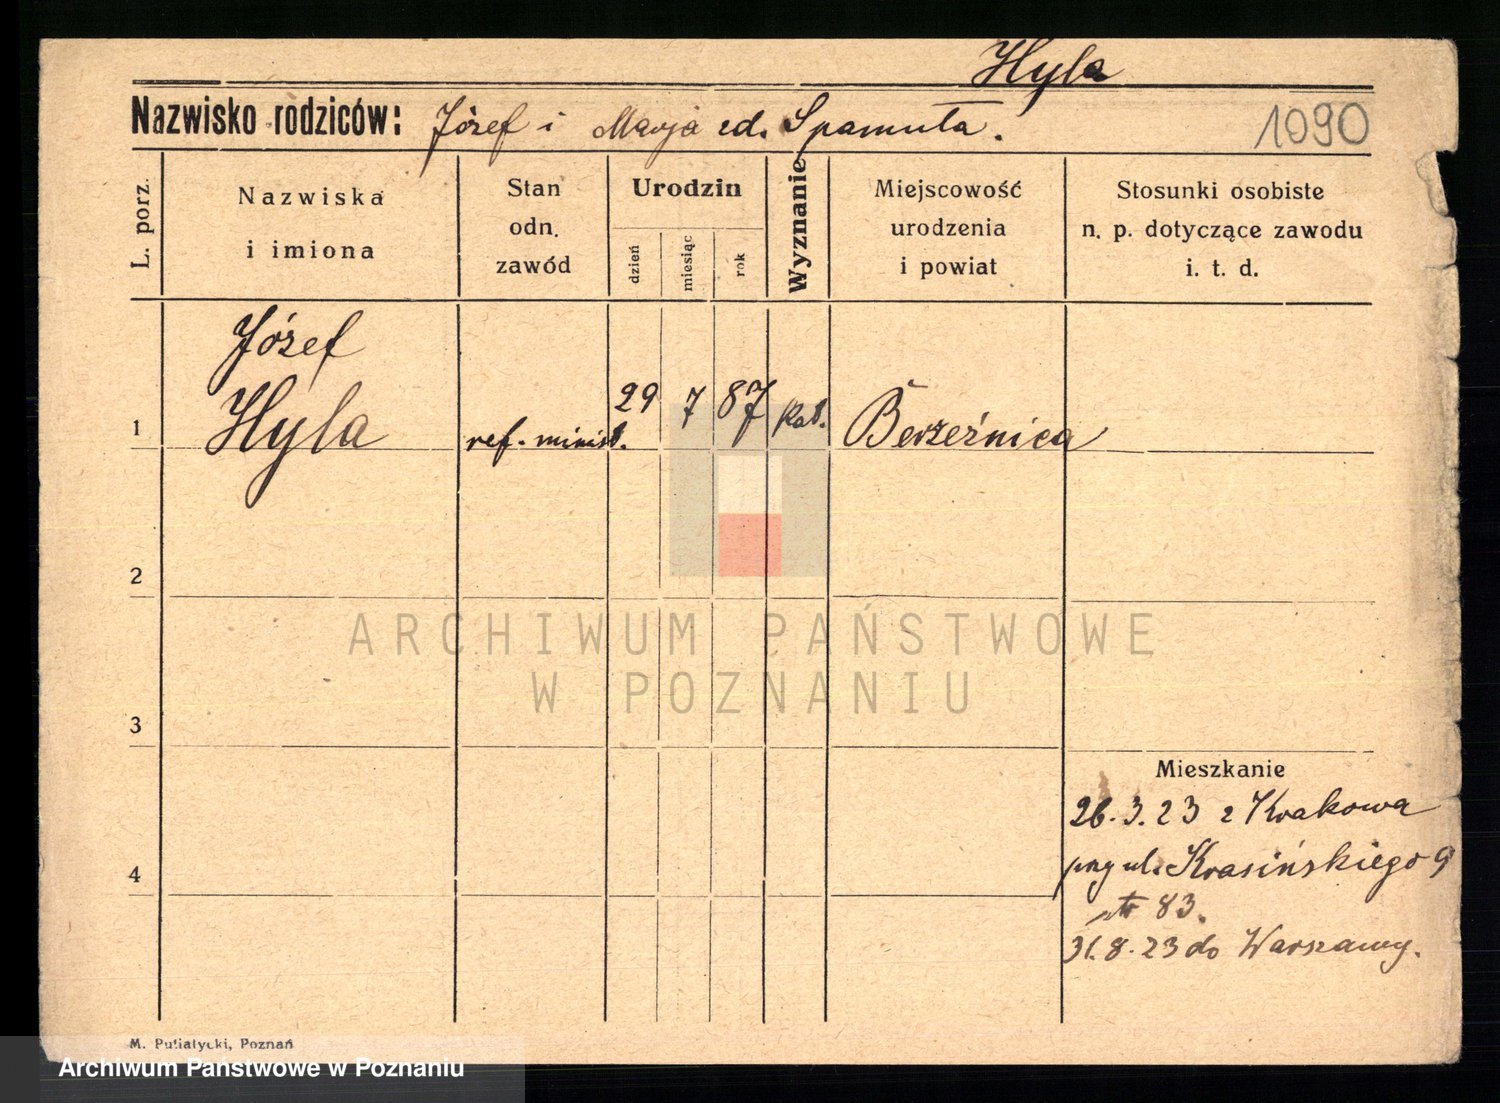 Hyla
Nazwisko rodziców: Józef i Marja zd. Spamuta.
1090
L. porz.
Nazwiska
i imiona
Stan
odn.
zawód
Urodzin
dzień
miesiąc
rok
Wyznanie
Miejscowość
urodzenia
i powiat
Stosunki osobiste
n. p. dotyczące zawodu
i. t. d.
1
Józef
Hyla
ref. minist.
29 7 87
kat.
Berzeźnica
2
3
4
Mieszkanie
26.3.23 z Krakowa
ul. Krasińskiego 9
83.
31.8.23 do Warszawy.
ARCHIWUM PAŃSTWOWE
W POZNANIU
M. Putiatycki, Poznań
Archiwum Państwowe w Poznaniu